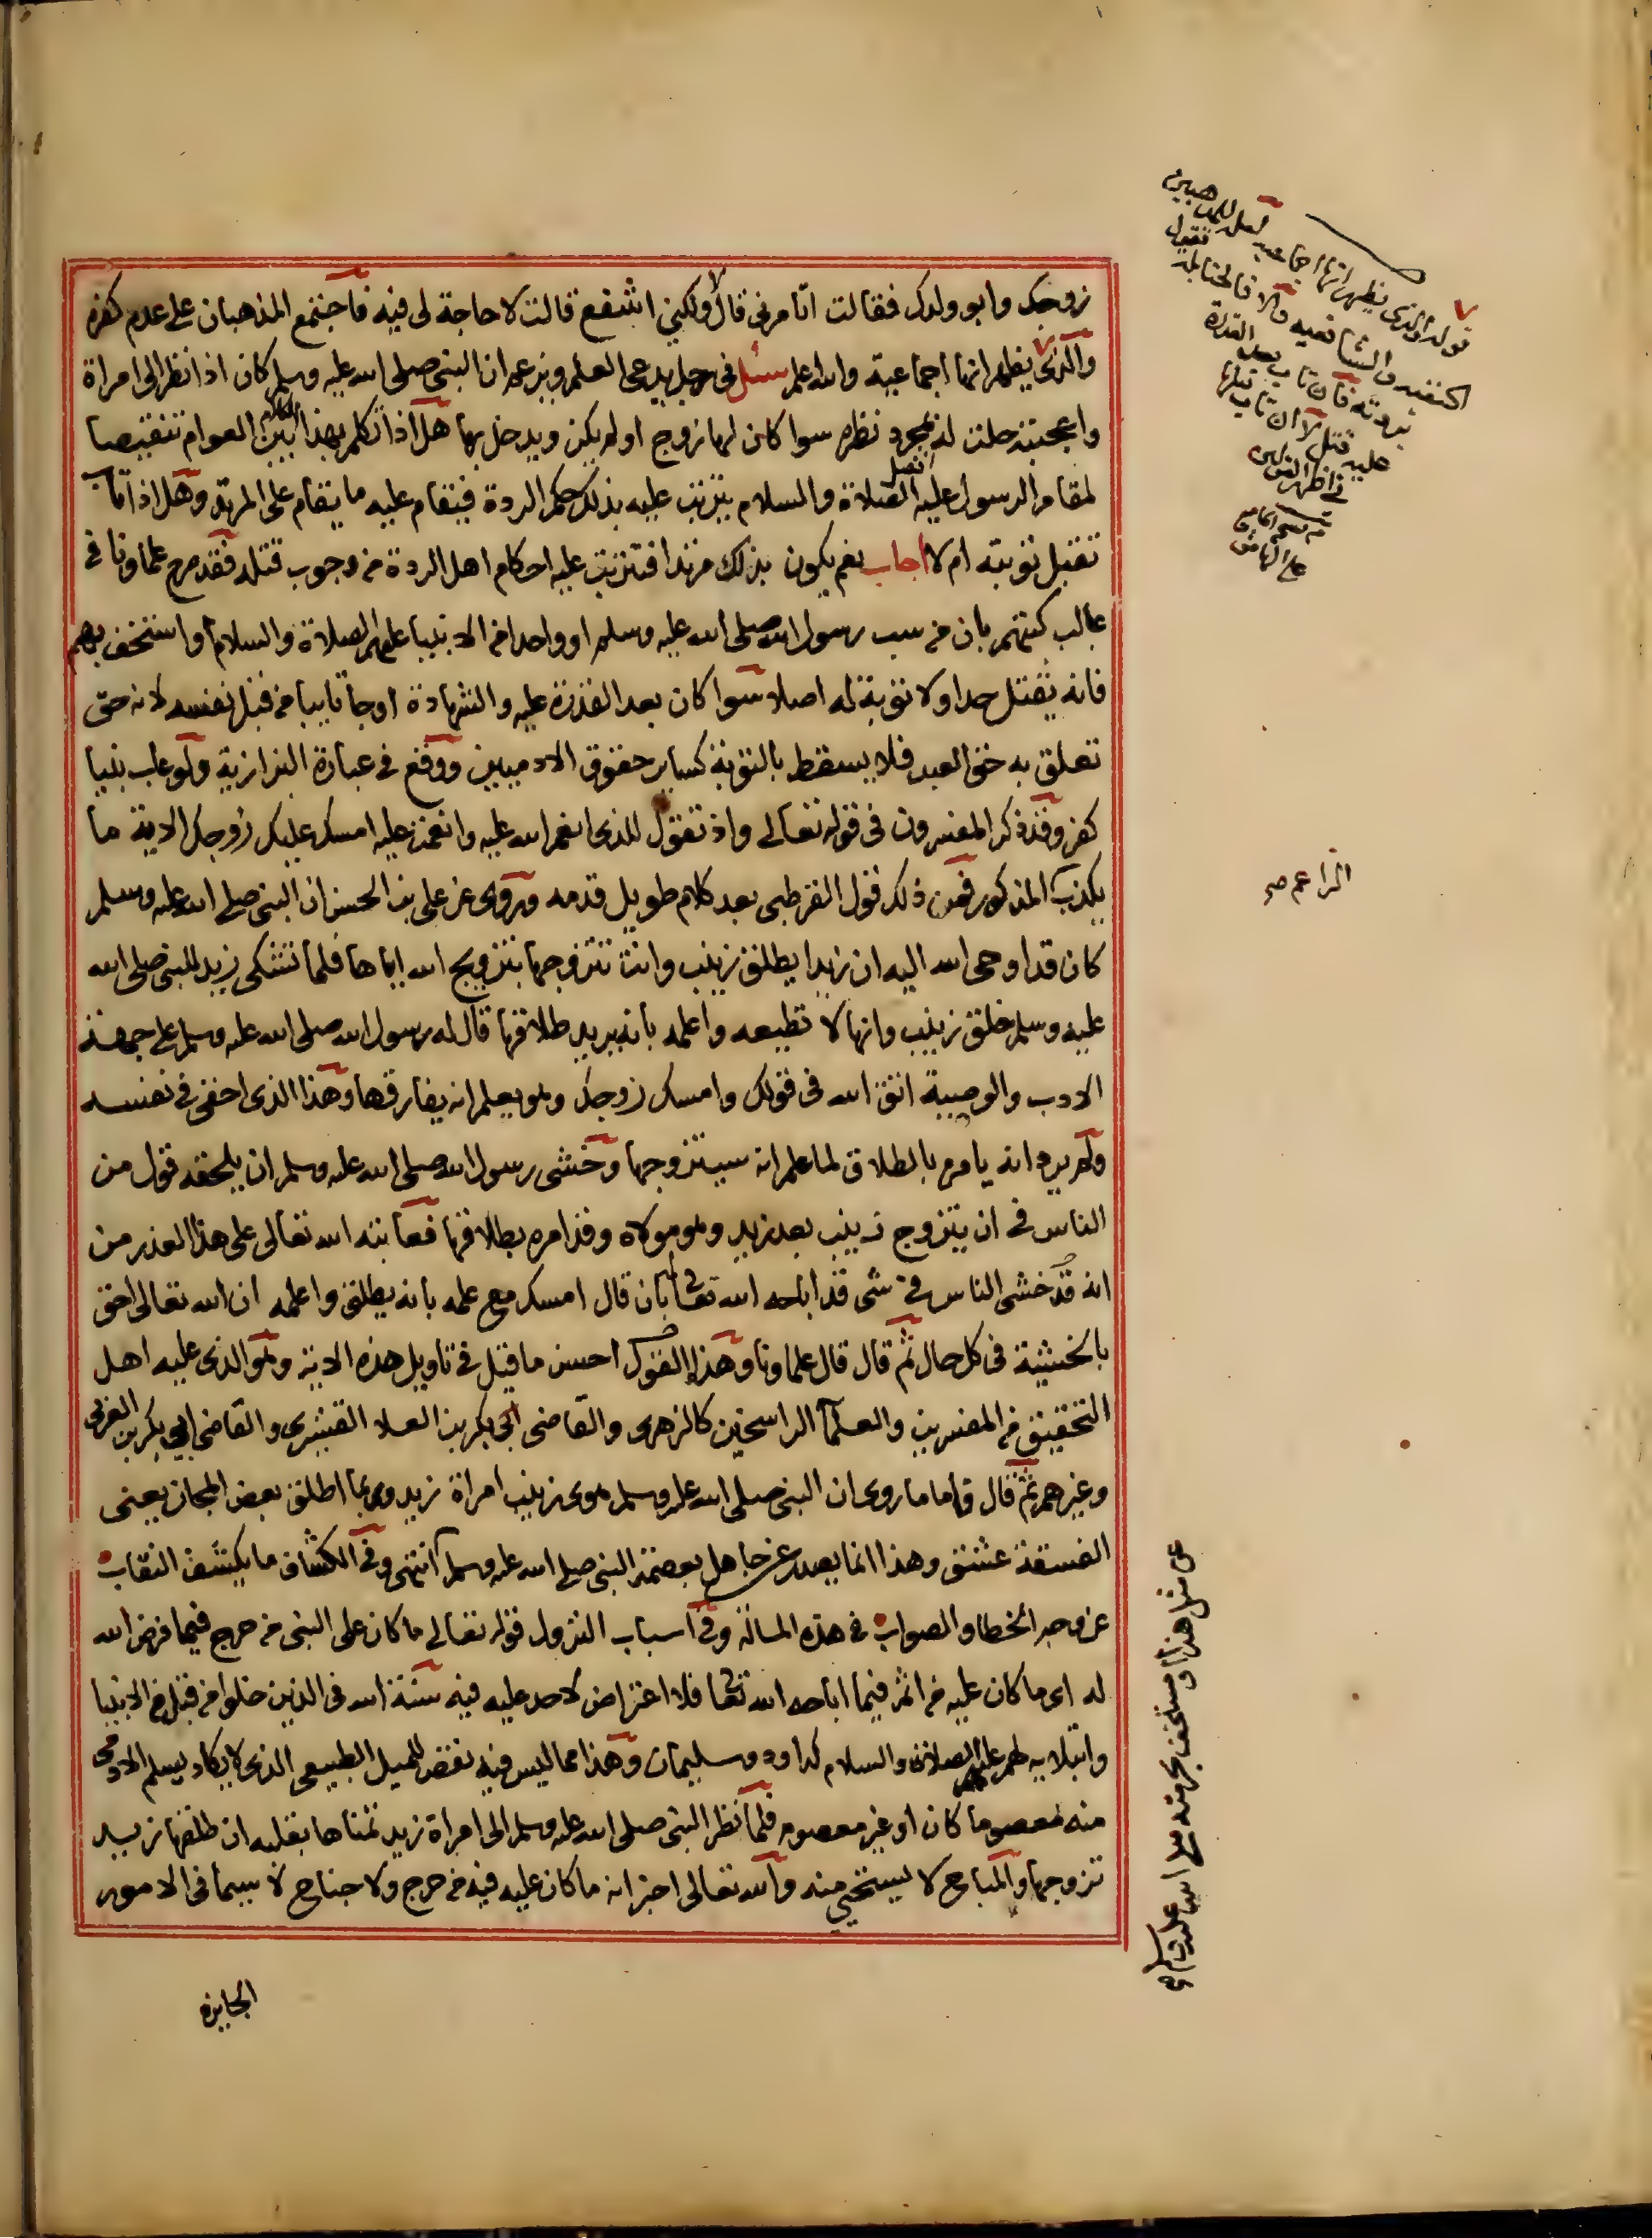 زوجك وابو ولدك فقالت اتامرني قال لا ولكني اشفع قالت لا حاجة لى فيه فاجتمع المذهبان على عدم كفره
والذى يظهر انها اجماعية والله اعلم سئل فى رجل يدعى العلم ويزعم ان النبى صلى الله عليه وسلم كان اذا نظر الى امراة
واعجبته حلت له بمجرد نظره سوا كان لها زوج او لم يكن ويدخل بها هل اذا تكلم بهذا الكلام بين العوام تنقيصا
لمقام الرسول عليه افضل الصلاة والسلام يترتب عليه بذلك حكم الردة فيقام عليه ما يقام على المرتد وهل اذا تاب
تقبل توبته ام لا اجاب نعم يكون بذلك مرتدا فتترتب عليه احكام اهل الردة من وجوب قتله فقد صرح علماونا فى
غالب كتبهم بان من سب رسول الله صلى الله عليه وسلم او واحدا من الانبيا عليهم الصلاة والسلام او استخف بهم
فانه يقتل حدا ولا توبة له اصلا سوا كان بعد القدرة عليه والشهادة او جا تايبا من قبل نفسه لانه حق
تعلق به حق العبد فلا يسقط بالتوبة كساير حقوق الادميين ووقع فى عبارة البزازية ولو عاب نبيا
كفر وقد ذكر المفسرون فى قوله تعالى واذ تقول للذى انعم الله عليه وانعمت عليه امسك عليك زوجك الاية ما
يكذب المذكور فمن ذلك قول القرطبى بعد كلام طويل قدمه وروى عن على بن الحسن ان النبى صلى الله عليه وسلم
كان قد اوحى الله اليه ان زيدا يطلق زينب وانت تتزوجها بتزويج الله اياها فلما تشكى زيد للنبى صلى الله
عليه وسلم خلق زينب وانها لا تطيعه واعلمه بانه يريد طلاقها قال له رسول الله صلى الله عليه وسلم على جهة
الادب والوصية اتق الله فى قولك وامسك زوجك وهو يعلم انه يفارقها وهذا الذى اخفى فى نفسه
ولم يرد انه يامره بالطلاق لما علم انه سيتزوجها وخشى رسول الله صلى الله عليه وسلم ان يلحقه قول من
الناس فى ان يتزوج زينب بعد زيد وهو مولاه وقد امره بطلاقها فعاتبه الله تعالى على هذا القدر من
انه قد خشى الناس فى شى قد اباحه الله تعالى بان قال امسك مع علمه بانه يطلق واعلمه ان الله تعالى احق
بالخشية فى كل حال ثم قال قال علماونا وهذا القول احسن ما قيل فى تاويل هذه الاية وهو الذى عليه اهل
التحقيق من المفسرين والعلما الراسخين كالزهرى والقاضى ابى بكر بن العلا القشيرى والقاضى ابى بكر بن العربى
وغيرهم ثم قال فاما ما روى ان النبى صلى الله عليه وسلم هوى زينب امراة زيد وربما اطلق بعض المجان يعنى
الفسقة عشق وهذا انما يصدر عن جاهل بعصمة النبى صلى الله عليه وسلم انتهى وفى الكشاف ما يكشف النقاب
عن وجه الخطا والصواب فى هذه المسالة وفى اسباب النزول قوله تعالى ما كان على النبى من حرج فيما فرض الله
له اى ما كان عليه من اثم فيما اباحه الله تعالى فلا اعتراض لاحد عليه فيه سنة الله فى الذين خلوا من قبل من الانبيا
وابتلايه لهم عليهم الصلاة والسلام كداود وسليمان وهذا مما ليس فيه نقص للميل الطبيعى الذى لا يكاد يسلم الادمى
منه معصوما كان او غير معصوم فلما نظر النبى صلى الله عليه وسلم الى امراة زيد تمناها بقلبه ان طلقها زيد
تزوجها والمباح لا يستحى منه والله تعالى اخبر انه ما كان عليه فيه من حرج ولا جناح لا سيما فى الامور
الجايزة
قوله والذى يظهر انها اجماعية لعل المذهبين
الحنفية والشافعية والا فالحنابلة فتقول
بردته فان تاب بعد القدرة
عليه قتل لا ان تاب قبلها
فى اظهر القولين
على الهامش
عن مثل هذا او مستخف بحرمته صلى الله عليه وسلم